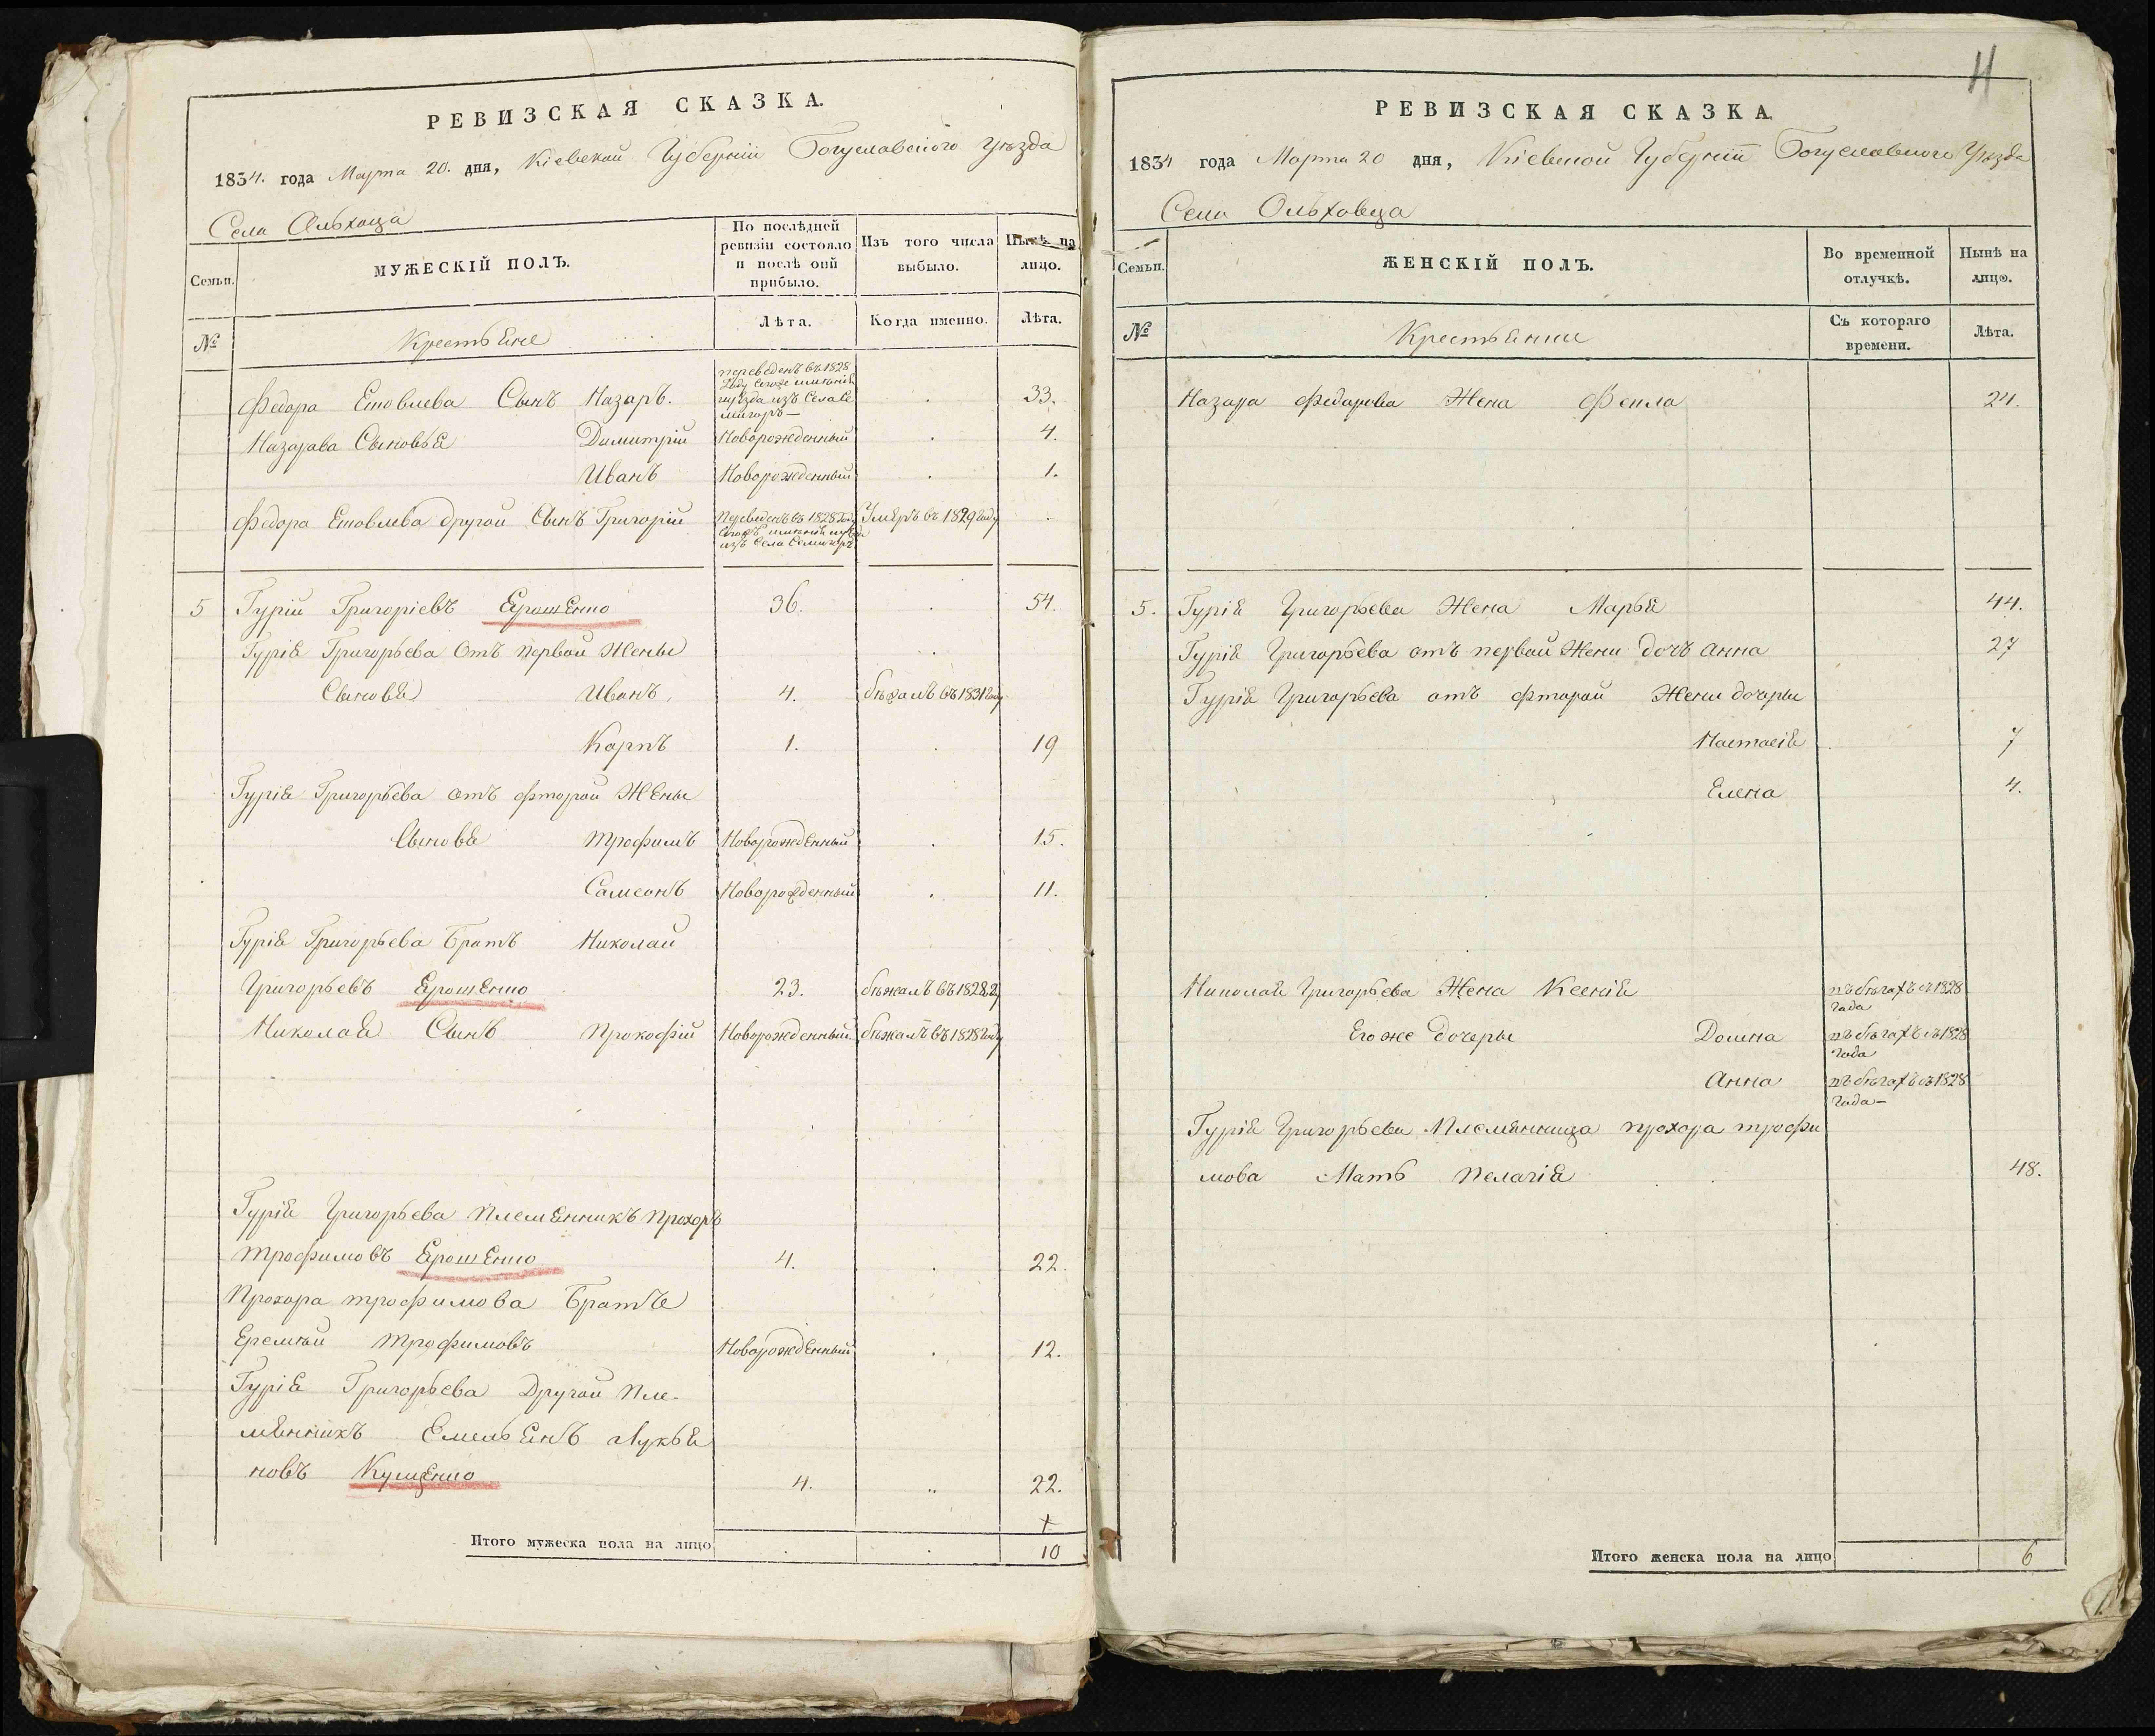 РЕВИЗСКАЯ СКАЗКА.
1834. года Марта 20. дня, Кіевской Губерніи Богуславского Уѣзда
Села Ольховца
Семьи.
МУЖЕСКІЙ ПОЛЪ.
По послѣдней ревизіи состояло и послѣ оной прибыло.
Изъ того числа выбыло.
Нынѣ на лицо.
№
Крестьяне
Лѣта.
Когда именно.
Лѣта.
Федора Сынъ Назаръ. переведенъ въ 1828 году изъ Села 33.
Назарава Сыновья Димитрій Новорожденный . 4.
Иванъ Новорожденный . 1.
Федора другой Сынъ Григорій Переведенъ въ 1828 году изъ Села Умеръ въ 1829 году
5 Гурій Григоріевъ Ерошенко 36. . 54.
Гурія Григорьева Отъ первой Жены
Сыновя Иванъ 4. бѣжалъ въ 1831 году
Карпъ 1. . 19
Гурія Григорьева отъ фторой Жены
Сыновя Трофимъ Новорожденный . 15.
Самсонъ Новорожденный . 11.
Гурія Григорьева Братъ Николай
Григорьевъ Ерошенко 23. бѣжалъ въ 1828
Николая Сынъ Прокофій Новорожденный. бѣжалъ въ 1828 году
Гурія Григорьева племенникъ Прохоръ
Трофимовъ Ерошенко 4. . 22.
Прохора трофимова Братъ
Еремѣй Трофимовъ Новорожденный . 12.
Гурія Григорьева Другой Пле-
мянникъ Емельянъ Лукья
новъ Кущенко 4. „ 22.
Итого мужеска пола на лицо . . 10
11
РЕВИЗСКАЯ СКАЗКА
1834 года Марта 20 дня, Кіевской Губерніи Богуславского Уѣзда
Села Ольховца
Семьи.
ЖЕНСКІЙ ПОЛЪ.
Во временной отлучкѣ.
Нынѣ на лицо.
№
Крестьянки
Съ котораго времени.
Лѣта.
Назара Федорова Жена Фекла 24.
5. Гурія Григорьева Жена Марья 44.
Гурія Григорьева отъ первой Жени дочъ Анна 27
Гурія Григорьева отъ фторой Жени дочеры
Настасія 7
Елена 4.
Николая Григорьева Жена Ксенія въ бѣгахъ съ 1828 года
Его же дочеры Домна въ бѣгахъ съ 1828 года
Анна въ бѣгахъ съ 1828 года —
Гурія Григорьева Племянница прохора трофи
мова Мать Пелагія 48.
Итого женска пола на лицо 6